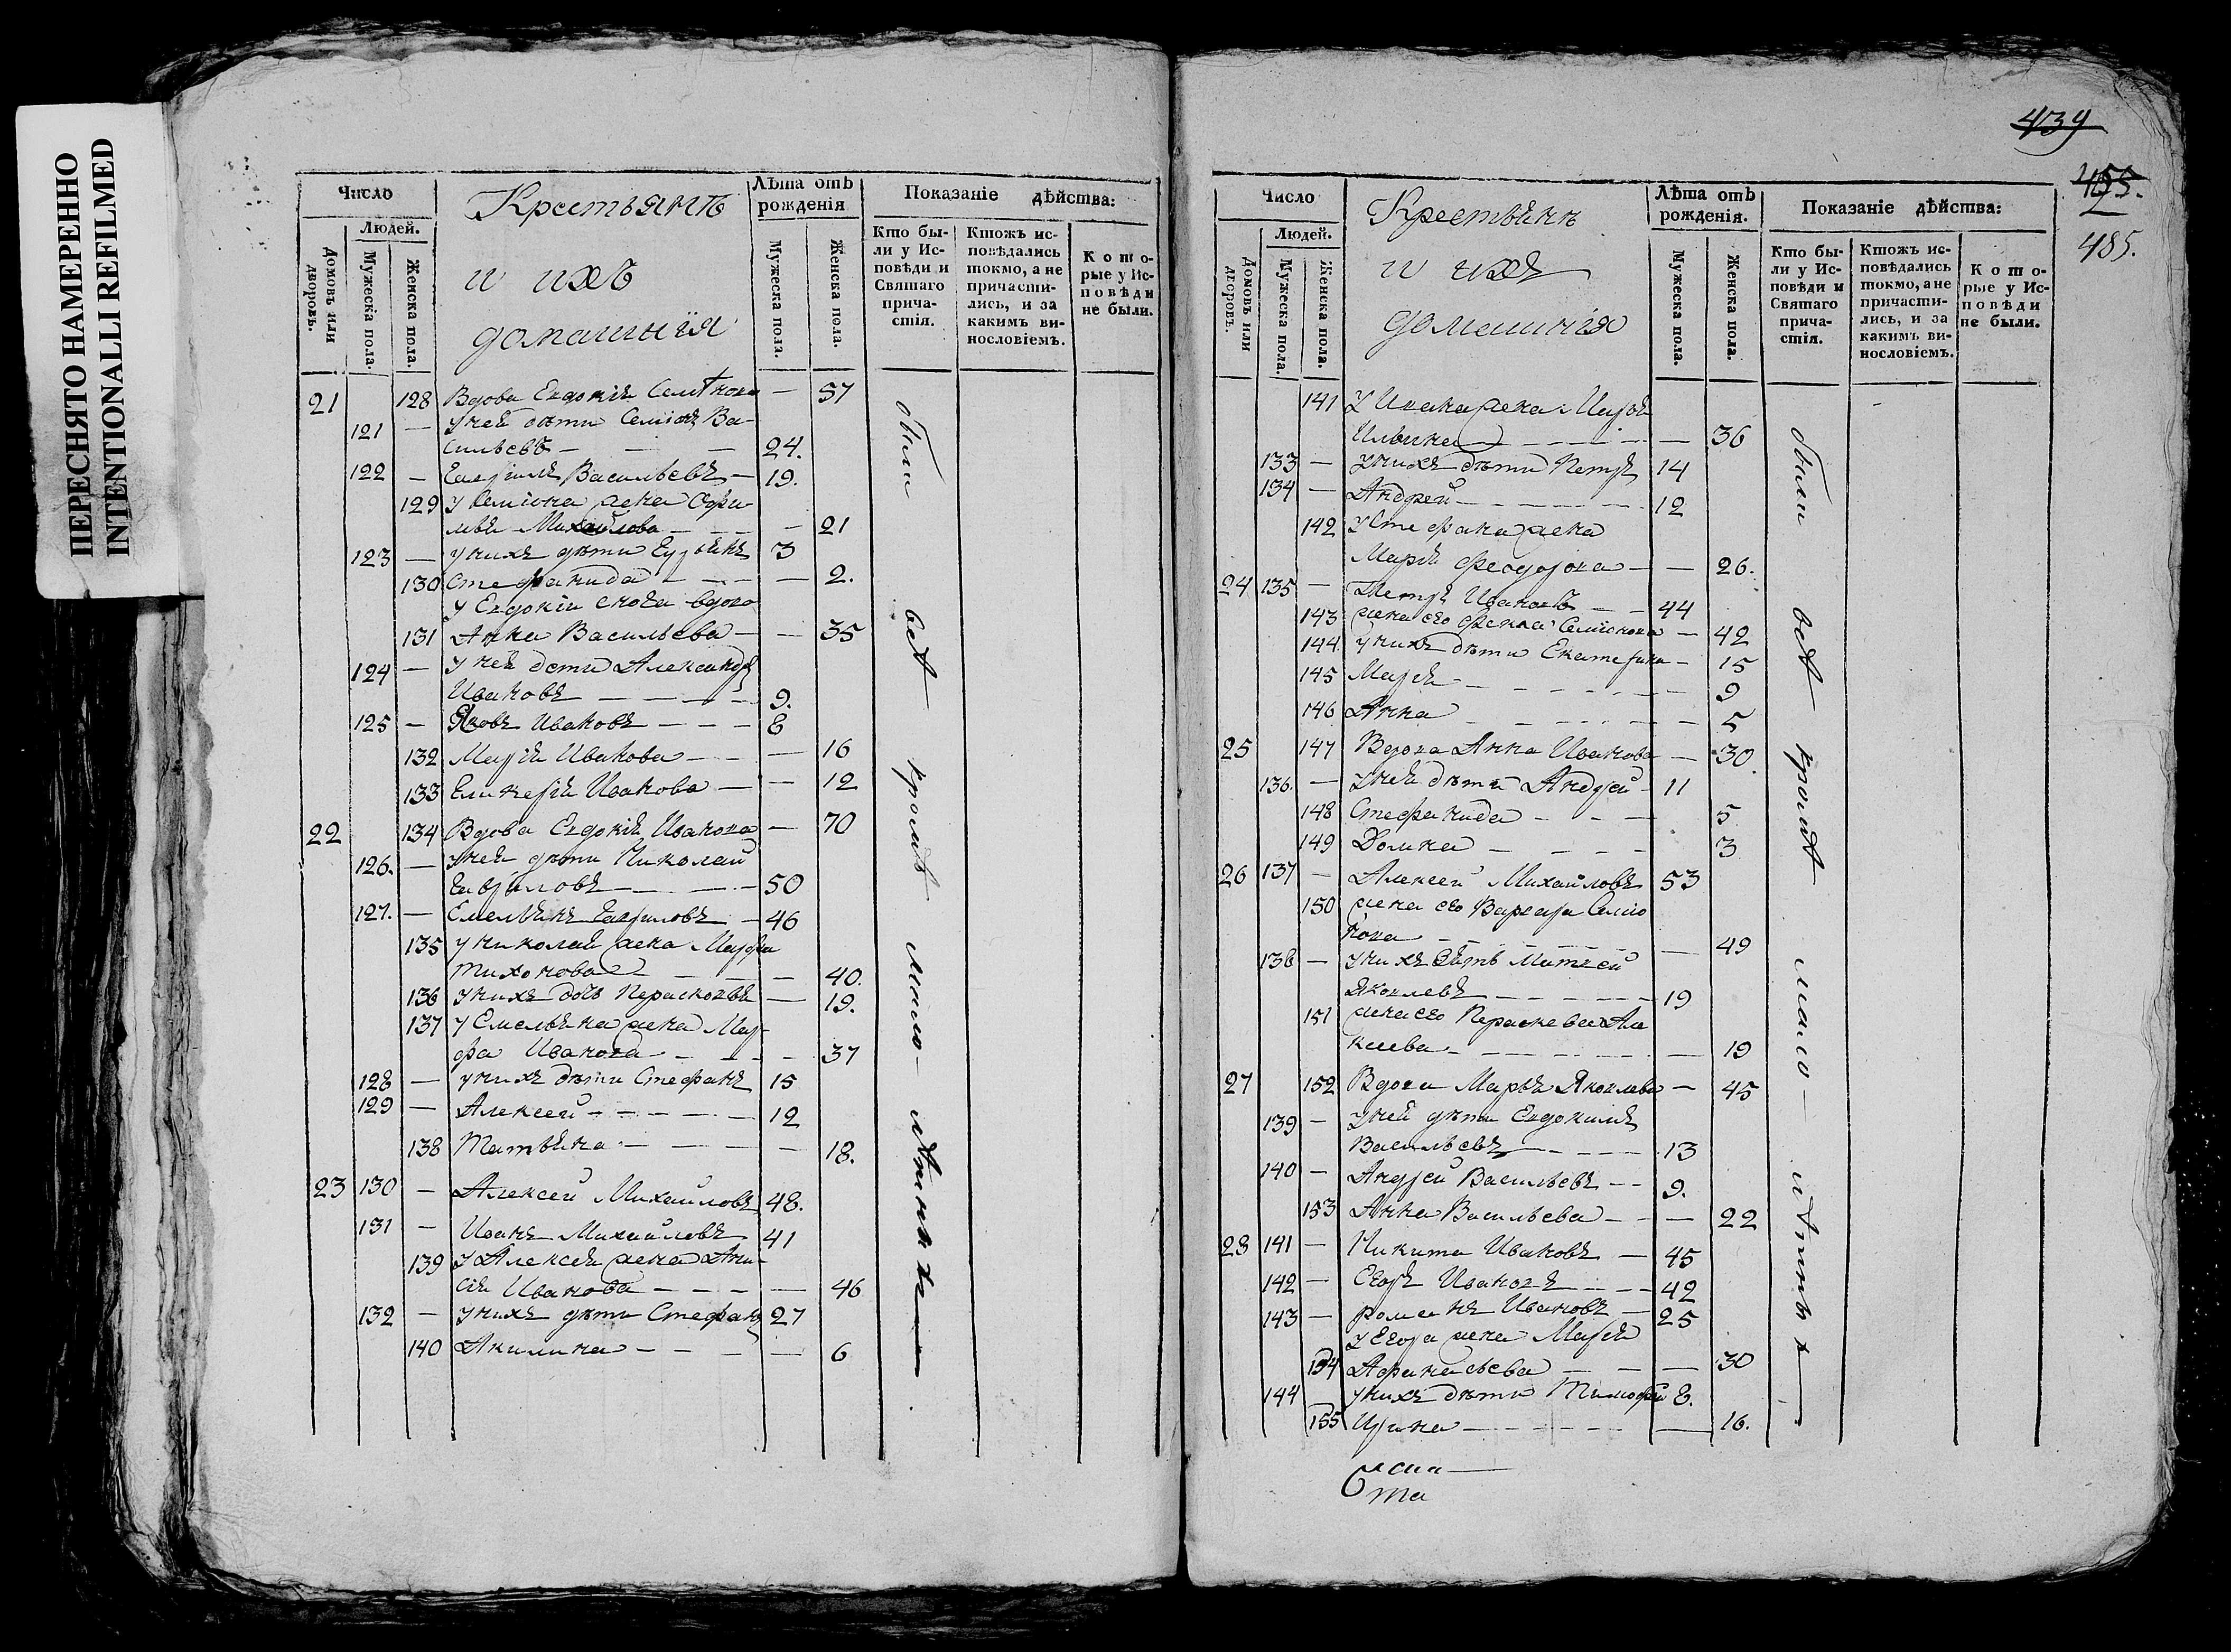 ПЕРЕСНЯТО НАМЕРЕННО
INTENTIONALLI REFILMED
Число
Людей.
Домовъ или дворовъ.
Мужеска пола.
Женска пола.
Крестьянѣ
и ихъ
домашнїя
Лѣта отъ рожденія
Мужеска пола.
Женска пола.
Показаніе дѣйства:
Кто бы-
ли у Ис-
повѣди и
Святаго
прича-
стія.
Ктожъ ис-
повѣдались
токмо, а не
причасти-
лись, и за
какимъ ви-
нословіемъ.
Кото-
рые у Ис-
повѣди
не были.
21 128 Вдова Евдокія Семїонова — 57
121 — У ней дѣти Семїонъ Ва-
сильевъ — 24.
122 — Гавріилъ Васильевъ — 19.
129 У Семїона жена Офи-
мья Михайлова — 21
123 — У нихъ дѣти Емельянъ 3
130 Стефанида — 2.
У Евдокіи сноха вдова
131 Анна Васильева — 35
124 — У ней дѣти Александръ
Ивановъ — 9.
125 — Яковъ Ивановъ — 8
132 Марія Иванова — 16
133 Гликерія Иванова — 12
22 134 Вдова Евдокія Иванова — 70
126. — У ней дѣти Николай
Гавриловъ — 50
127. — Емельянъ Гавриловъ — 46
135 У Николая жена Марфа
Тихонова — 40.
136 У нихъ дочь Парасковья — 19.
137 У Емельяна жена Мар-
фа Иванова — 37
128 — У нихъ дѣти Стефанъ 15
129 — Алексей — 12
138 Татьяна — 18.
23 130 — Алексей Михайловъ 48.
131 — Иванъ Михайловъ 41
139 У Алексея жена Ани-
сія Иванова — 46
132 — У нихъ дѣти Стефанъ 27
140 Акилина — 6
были всѣ кромѣ мало-лѣтнихъ
439
455.
485.
Число
Людей.
Домовъ или дворовъ.
Мужеска пола.
Женска пола.
Крестьянѣ
и ихъ
домашнїя
Лѣта отъ рожденія.
Мужеска пола.
Женска пола.
Показаніе дѣйства:
Кто бы-
ли у Ис-
повѣди и
Святаго
прича-
стія.
Ктожъ ис-
повѣдались
токмо, а не
причасти-
лись, и за
какимъ ви-
нословіемъ.
Кото-
рые у Ис-
повѣди
не были.
141 У Ивана жена Марья
Ильина — 36
133 — У нихъ дѣти Петръ 14
134 — Андрей — 12
142 У Стефана жена
Марія Феодорова — 26.
24 135 — Петръ Ивановъ — 44
143 жена его Фекла Семїонова — 42
144. У нихъ дѣти Екатерина — 15
145 Марія — 9
146 Анна — 5
25 147 Вдова Анна Иванова — 30
136. — У ней дѣти Андрей — 11
148 Стефанида — 5
149 Домна — 3
26 137 — Алексей Михайловъ 53
150 жена его Варвара Семїо
нова — 49
138 — У нихъ зять Матвей
Яковлевъ — 19
151 жена его Параскева Але
ксеева — 19
27 152 Вдова Марья Яковлева — 45
139 — У ней дѣти Евдокимъ
Васильевъ — 13
140 — Андрей Васильевъ — 9.
153 Анна Васильева — 22
28 141 — Никита Ивановъ — 45
142 — Егоръ Ивановъ — 42
143 — Романъ Ивановъ — 25
У Егора жена Марія
154 Афанасьева — 30
144 У нихъ дѣти Тимофей 8.
155 Ирина — 16.
были всѣ кромѣ мало-лѣтнихъ